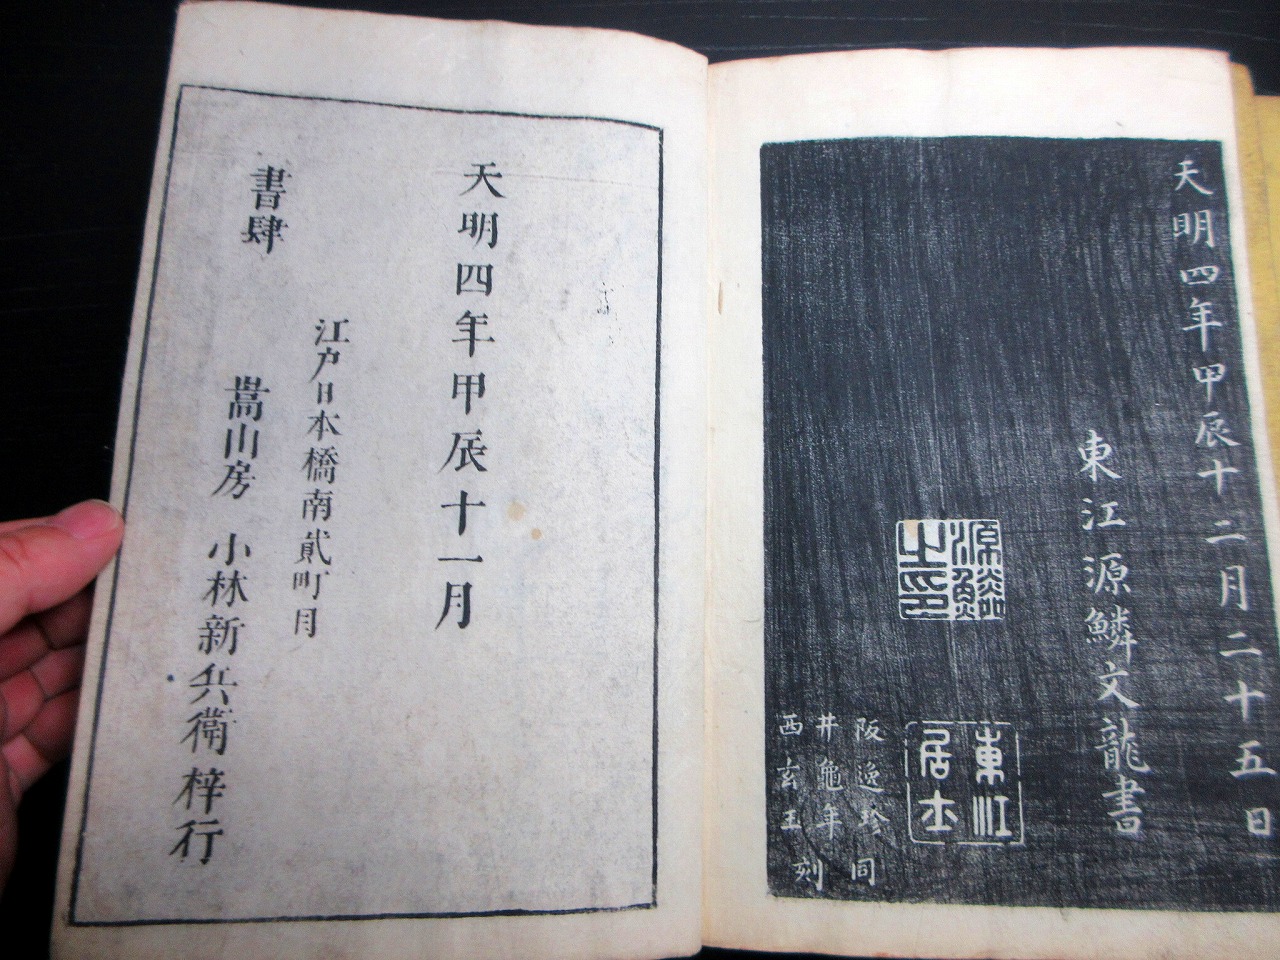 天明四年甲辰十二月二十五日
東江源鱗文龍書
源鱗
之印
東江
居士
阪逸珍同
井龜年
西玄王刻
天明四年甲辰十一月
江戸日本橋南貳町目
書肆 嵩山房 小林新兵衛梓行